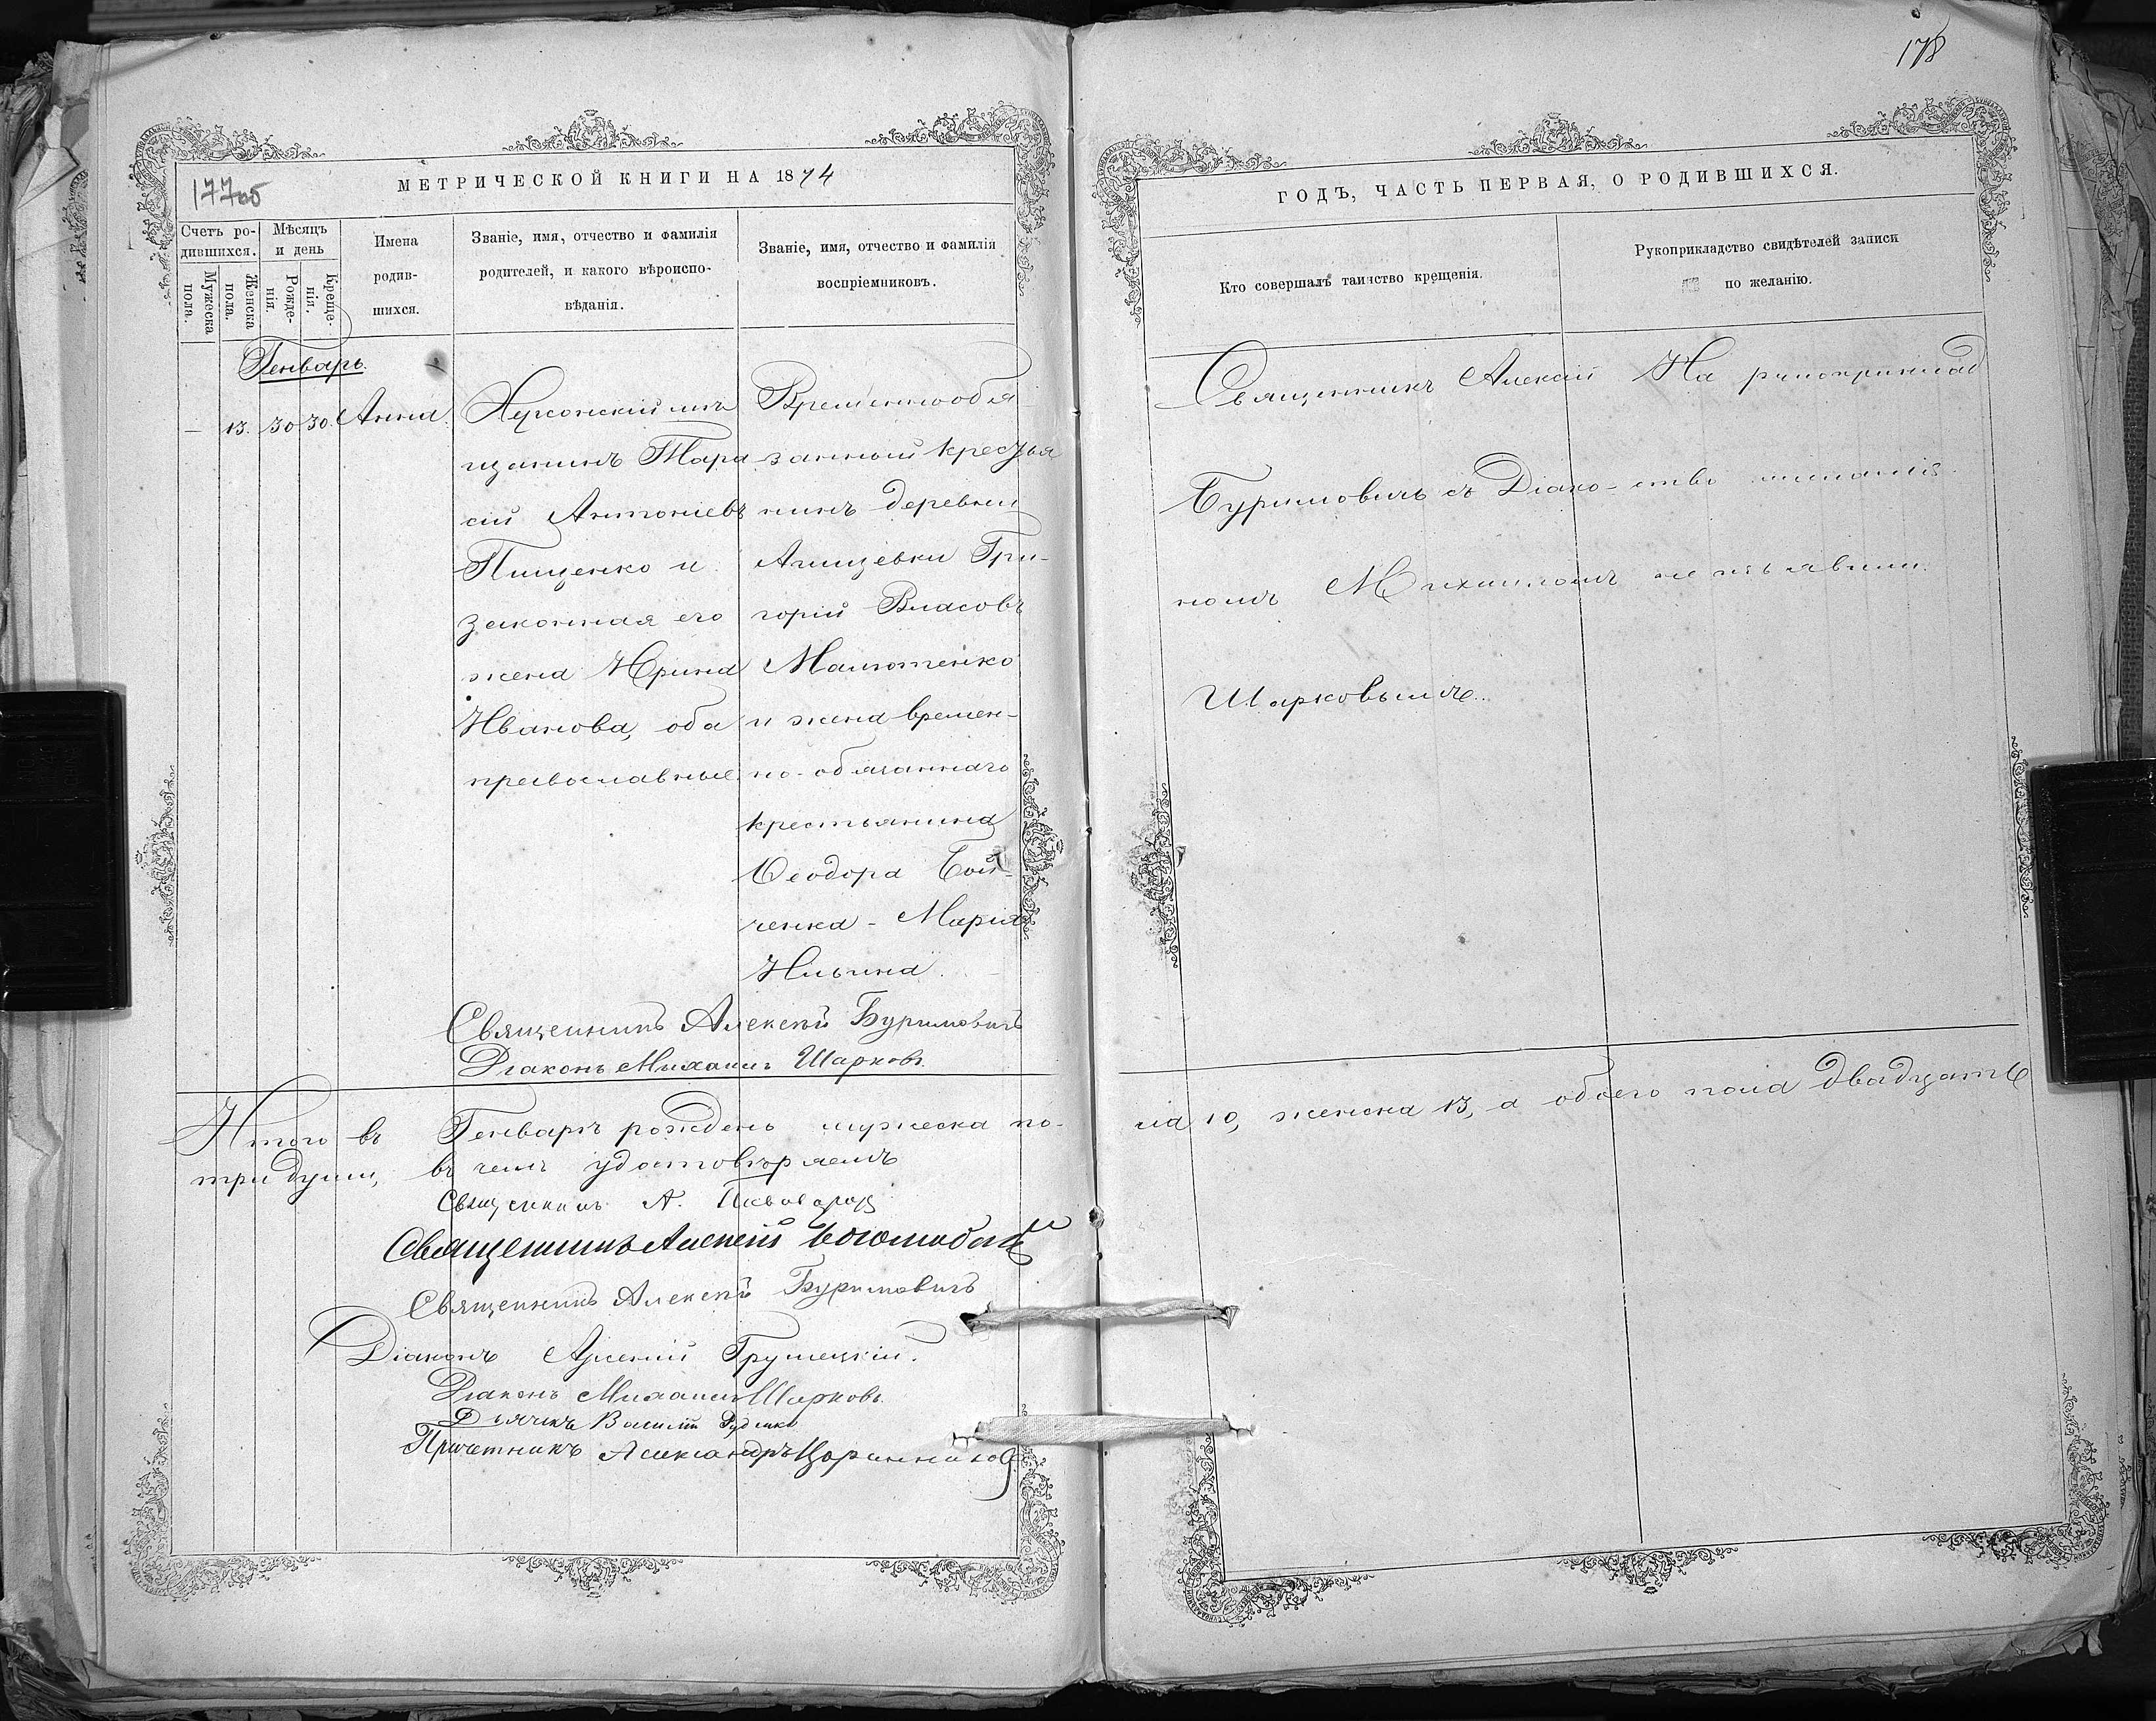 178
177об
МЕТРИЧЕСКОЙ КНИГИ НА 1874
Счетъ ро-
дившихся.
Мужеска
пола.
Женска
пола.
Мѣсяцъ
и день
Рожде-
нія.
Креще-
нія.
Имена
родив-
шихся.
Званіе, имя, отчество и фамилія
родителей, и какого вѣроиспо-
вѣданія.
Званіе, имя, отчество и фамилія
воспріемниковъ.
Генварь.
— 13. 30 30. Анна.
Херсонскій мѣ
щанинъ Тара
сій Антоніевъ
Пищенко и
законная его
жена Ирина
Иванова, оба
православные.
Временнообя
занный крестья
нинъ деревни
Григорій Власовъ
Малютенко
и жена времен-
но-обязаннаго
крестьянина
Ѳеодора Бой-
ченка - Марія
Ильина.
Священникъ Алексѣй Буримовичъ
Діаконъ Михаилъ Шарковъ.
Итого въ Генварѣ рождено мужеска по-
три души, въ чемъ удостовѣряемъ
Священникъ А.
Священникъ Алексѣй
Священникъ Алексѣй Буримовичъ
Діаконъ Арсеній Грушецкій.
Діаконъ Михаилъ Шарковъ.
Дьячекъ Василій Руденко
Причетникъ Александръ
ГОДЪ, ЧАСТЬ ПЕРВАЯ, О РОДИВШИХСЯ.
Кто совершалъ таинство крещенія.
Рукоприкладство свидѣтелей записи
по желанію.
Священникъ Алексій
Буримовичъ съ Діако-
номъ Михаиломъ
Шарковымъ.
На рукоприклад
ство желанія
не изъявили.
ла 10, женска 13, а обоего пола двадцать